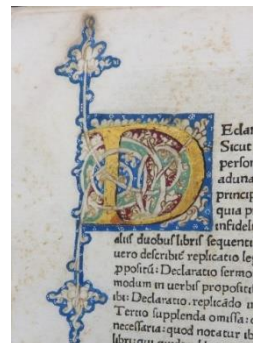 D
Eclar
Sicut
person
aduna
princip
quia p
infidel
aliis duobus libris sequent
uero describit̃ replicatio leg
ppositũ: Declaratio sermo
modum in uerbis propositi
ibi: Declaratio. replicãdo i
Tertio supplenda omissa:
necessaria: quod notatur ib